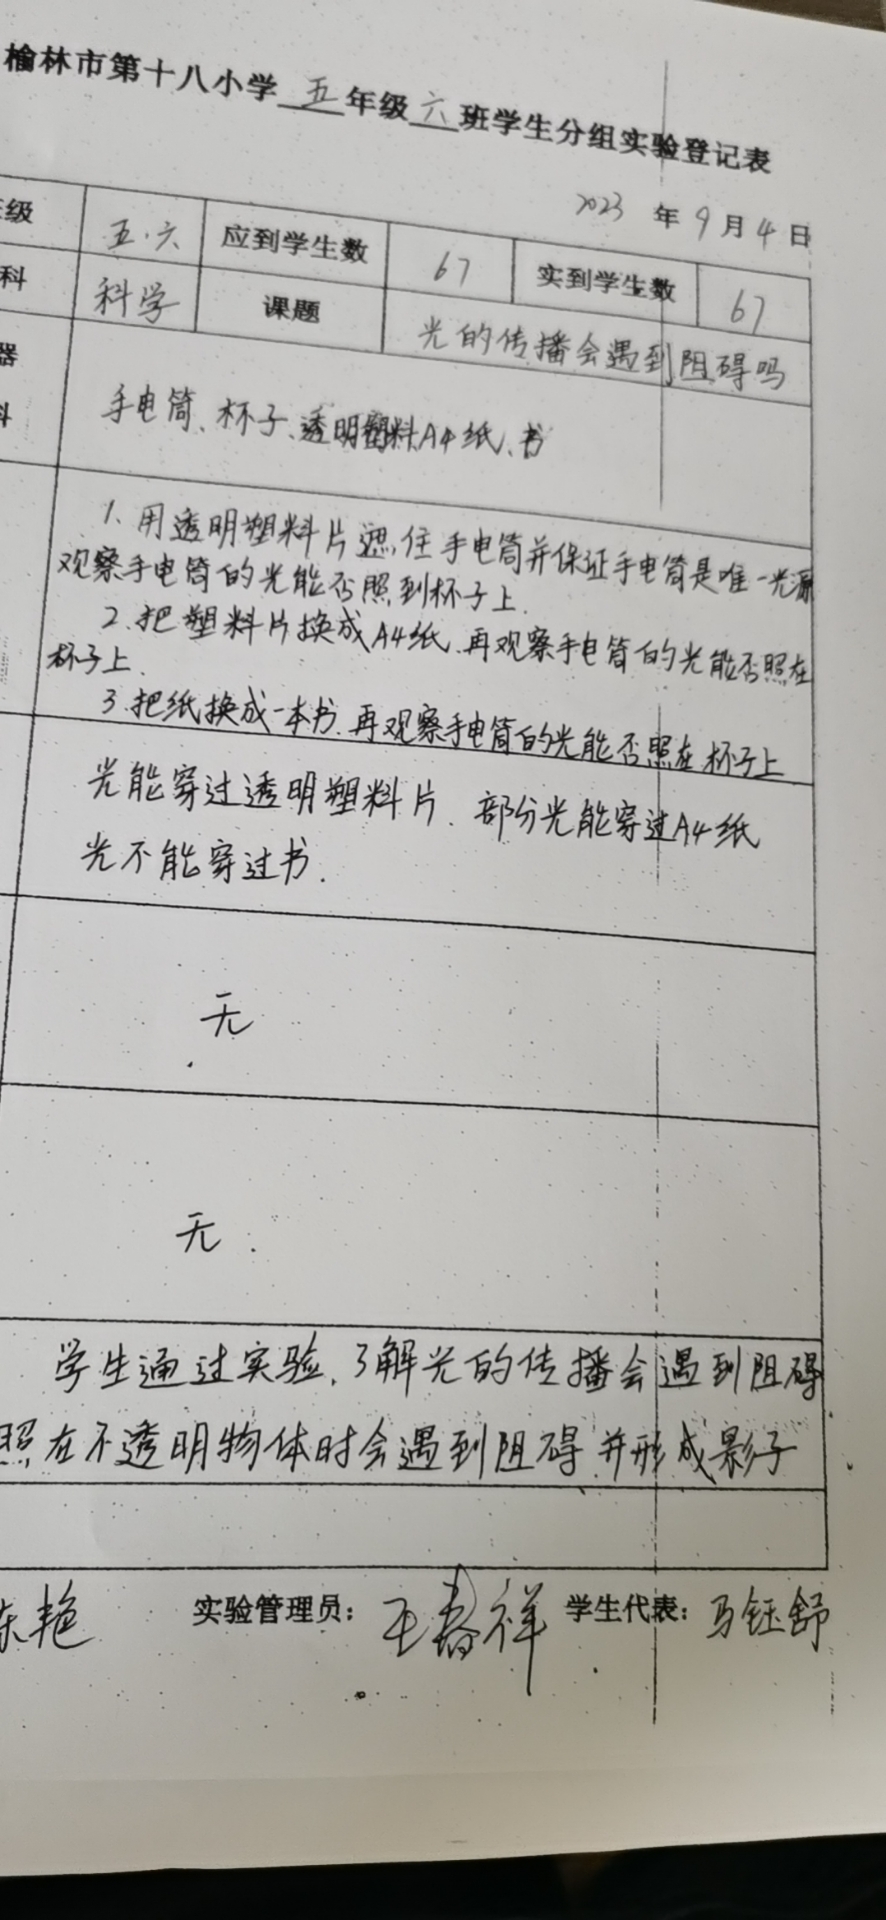 榆林市第十八小学五年级六班学生分组实验登记表
2023年9月4日
级 五.六 应到学生数 67 实到学生数 67
科 科学 课题 光的传播会遇到阻碍吗
器
手电筒、杯子、透明塑料A4纸、书
1、用透明塑料片遮住手电筒并保证手电筒是唯一光源
观察手电筒的光能否照到杯子上.
2.把塑料片换成A4纸.再观察手电筒的光能否照在
杯子上.
3.把纸换成一本书.再观察手电筒的光能否照在杯子上
光能穿过透明塑料片.部分光能穿过A4纸
光不能穿过书.
无
无.
学生通过实验.了解光的传播会遇到阻碍
照在不透明物体时会遇到阻碍并形成影子
艳 实验管理员：王春祥 学生代表：马钰舒